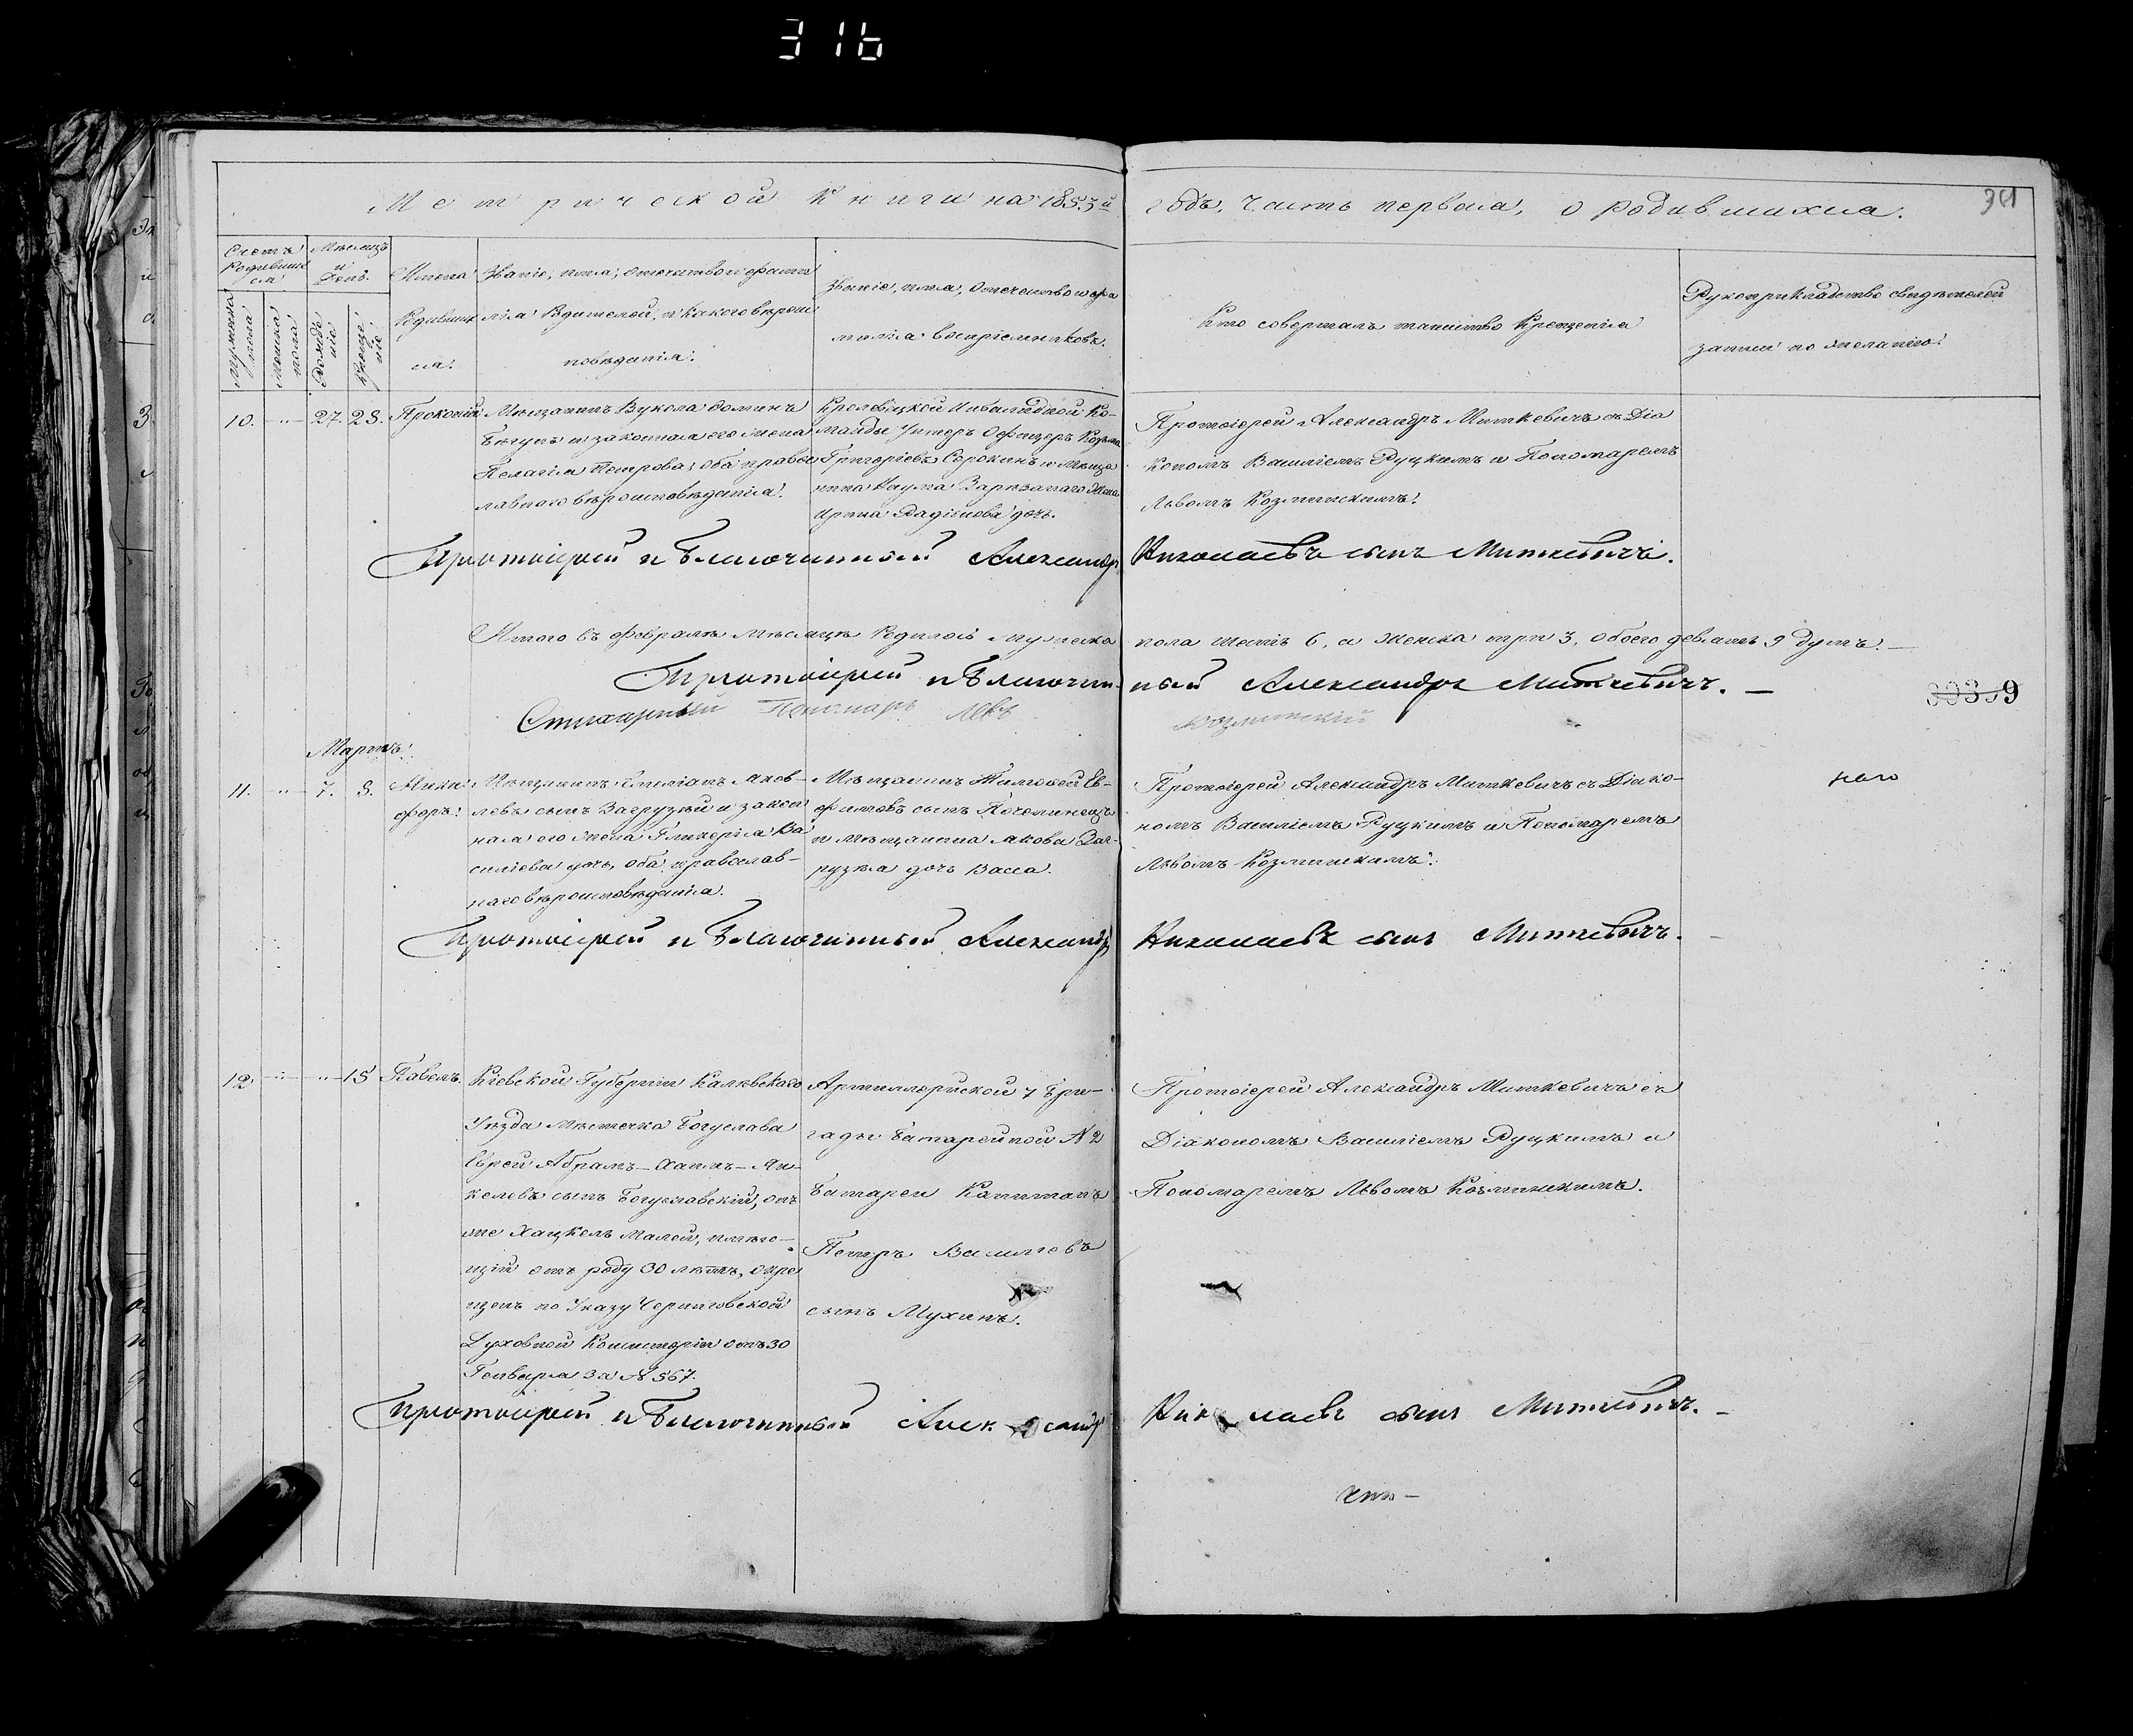 316
Метрической Книги на 1853й годъ, часть первая, о родившихся.
301
Счетъ Родившихся
Мѣсяцъ и День.
Мужеска пола
Женска пола
Рожденіе
Крещеніе
Имена
Родивших
ся.
Званіе, имя, отечество и фами
лія Родителей, и какого вѣроис
повѣданія.
Званіе, имя, Отечество и фа
милія воспріемниковъ.
Кто совершалъ таинство Крещенія
Рукоприкладство свидѣтелей
записи по желанію.
10. 27. 28. Прокопій
Мѣщанинъ Вукола
Бѣгунъ и законная его жена
Пелагія Петрова, оба правос
лавнаго вѣроисповѣданія.
Кролевецкой Инвалидной Ко-
манды Унтеръ Офицеръ Козма
Григоріевъ Сорокинъ и Мѣща
нина Наума Зарѣзанаго Жена
Ирина Радіонова дочь.
Протоіерей Александръ Миткевичъ съ Діа
кономъ Василіемъ Руцкимъ и Пономаремъ
Львомъ Козминскимъ.
Протоіерей и Благочинный Александръ Николаевъ сынъ Миткевичъ.
Итого въ февралѣ мѣсяцѣ Родилось мужеска пола шесть 6, а женска три 3, обоего девять 9 душъ.
Протоіерей и Благочинный Александръ Миткевичъ.
Стихарный Пономарь Левъ Козминскій
9
Мартъ.
11. 7. 8. Ники
форъ.
Мѣщанинъ Емеліанъ Яков-
левъ сынъ Загрузъй и закон
ная его жена Гликерія Ва
силіева дочь, оба православ-
наго вѣроисповѣданія.
Мѣщанинъ Тимофей Ев-
фимовъ сынъ Почеминецъ
и Мѣщанина Якова Заг-
рузъя дочь Васса.
Протоіерей Александръ Миткевичъ съ Діако-
номъ Василіемъ Руцкимъ и Пономаремъ
Львомъ Козминскимъ.
наго
Протоіерей и Благочинный Александръ Николаевъ сынъ Миткевичъ.
12. 15 Павелъ.
Кіевской Губерніи Каневскаго
Уѣзда мѣстечка Богуслава
Еврей Абрамъ-Хаимъ-Ян-
келевъ сынъ Богуславскій, онъ
же Хацкель Малой, имѣю-
щій отъ роду 30 лѣтъ, окре
щенъ по Указу Черниговской
Духовной Консисторіи отъ 30
Генваря за № 567.
Артиллерійской 7 Бри-
гады батарейной № 2
батареи Капитанъ
Петръ Василіевъ
сынъ Мухинъ.
Протоіерей Александръ Миткевичъ съ
Діакономъ Василіемъ Руцкимъ и
Пономаремъ Львомъ Козминскимъ.
Протоіерей и Благочинный Александръ Николаевъ сынъ Миткевичъ.